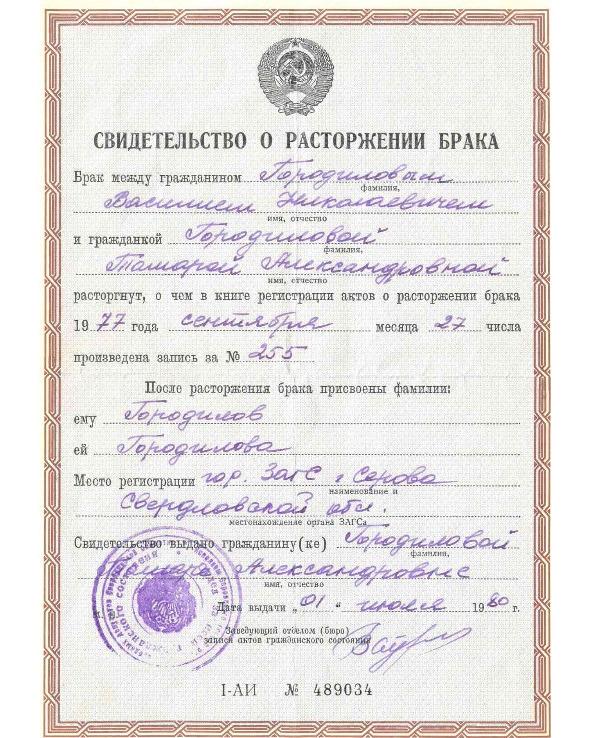 СВИДЕТЕЛЬСТВО О РАСТОРЖЕНИИ БРАКА
Брак между гражданином Городиловым
фамилия,
Василием Николаевичем
имя, отчество
и гражданкой Городиловой
фамилия,
Тамарой Александровной
имя, отчество
расторгнут, о чем в книге регистрации актов о расторжении брака
1977 года сентября месяца 27 числа
произведена запись за № 255
После расторжения брака присвоены фамилии:
ему Городилов
ей Городилова
Место регистрации гор. ЗАГС г Серова
наименование и
Свердловской обл.
местонахождение органа ЗАГСа
Свидетельство выдано гражданину(ке) Городиловой
фамилия,
Александровне
имя, отчество
Дата выдачи „01" июля 1980 г.
Заведующий отделом (бюро)
записи актов гражданского состояния
I-АИ № 489034